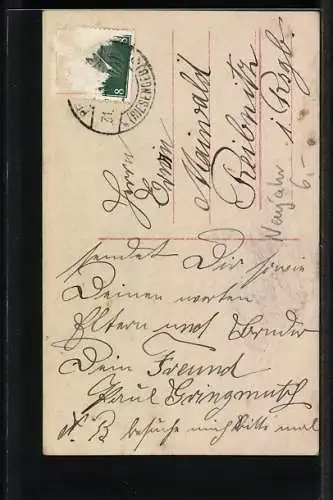 31.
(RIESENGEB
8
Herrn
Erwin
Maiwald
Reibnitz
i. Rsgb.
Neujahr
6.-
sendet Dir sowie
Deinen werten
Eltern und Bruder
Dein Freund
Paul Gringmuth
N. B besuche mich bitte mal